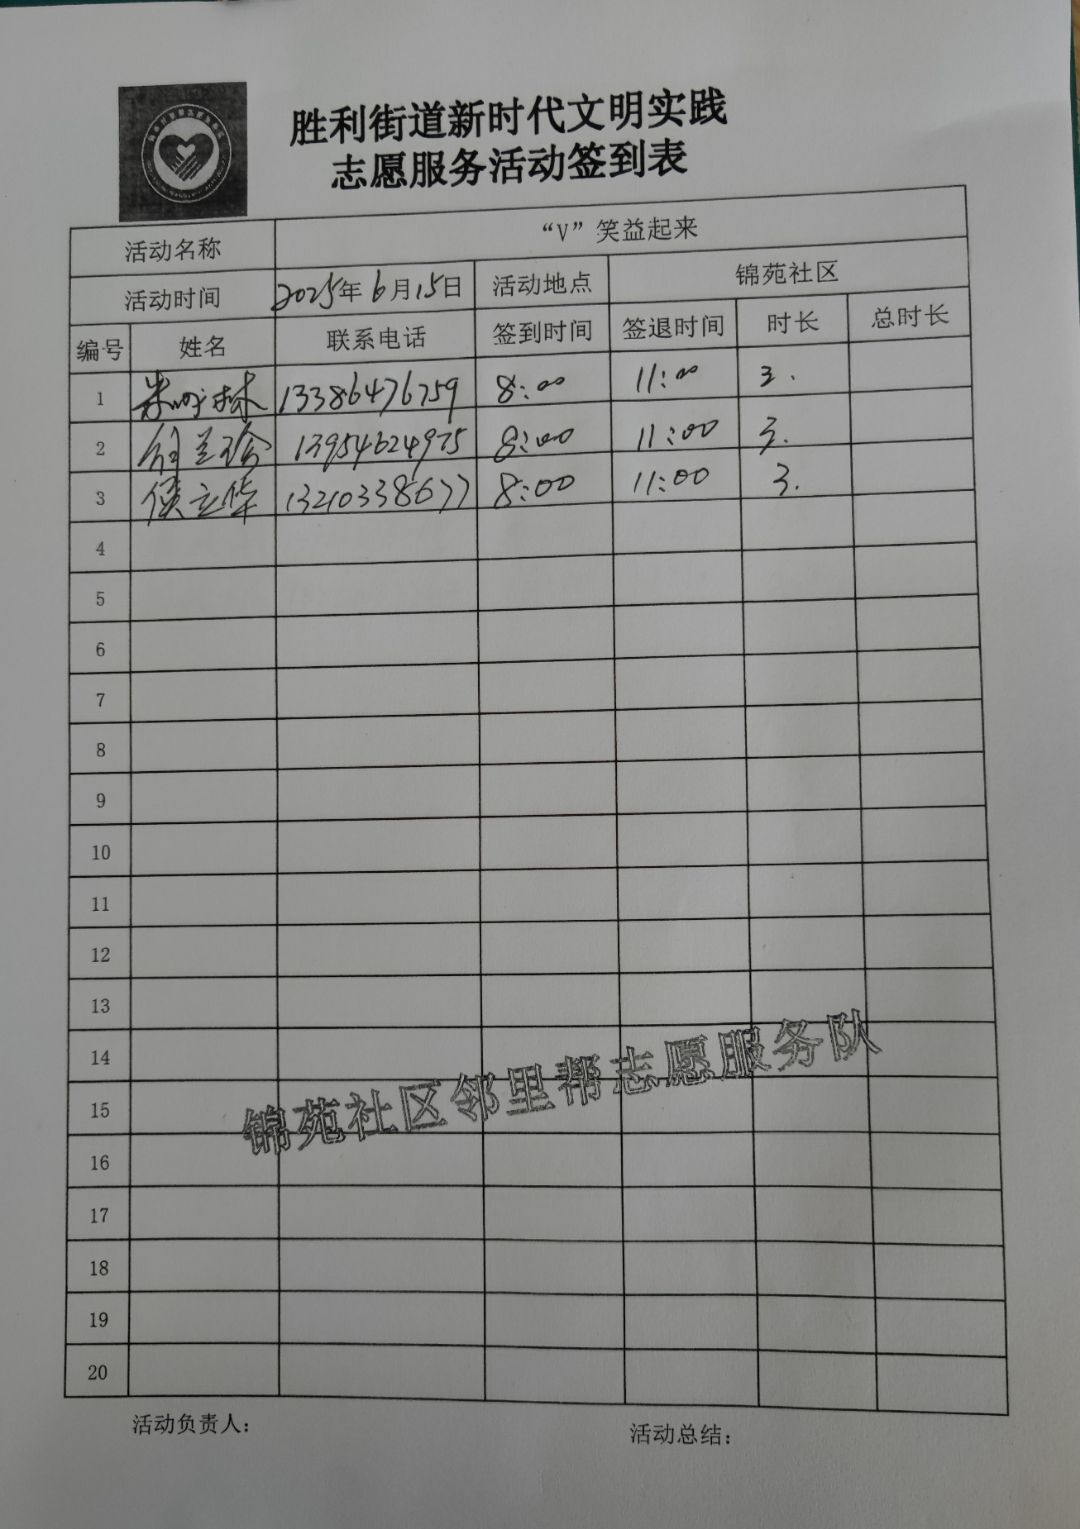 胜利街道新时代文明实践
志愿服务活动签到表
活动名称 “V”笑益起来
活动时间 2025年6月15日 活动地点 锦苑社区
编号 姓名 联系电话 签到时间 签退时间 时长 总时长
1 13386476759 8:00 11:00 3.
2 13954624975 8:00 11:00 3.
3 侯立华 13210338677 8:00 11:00 3.
4
5
6
7
8
9
10
11
12
13
14
15
16
17
18
19
20
锦苑社区邻里帮志愿服务队
活动负责人: 活动总结: